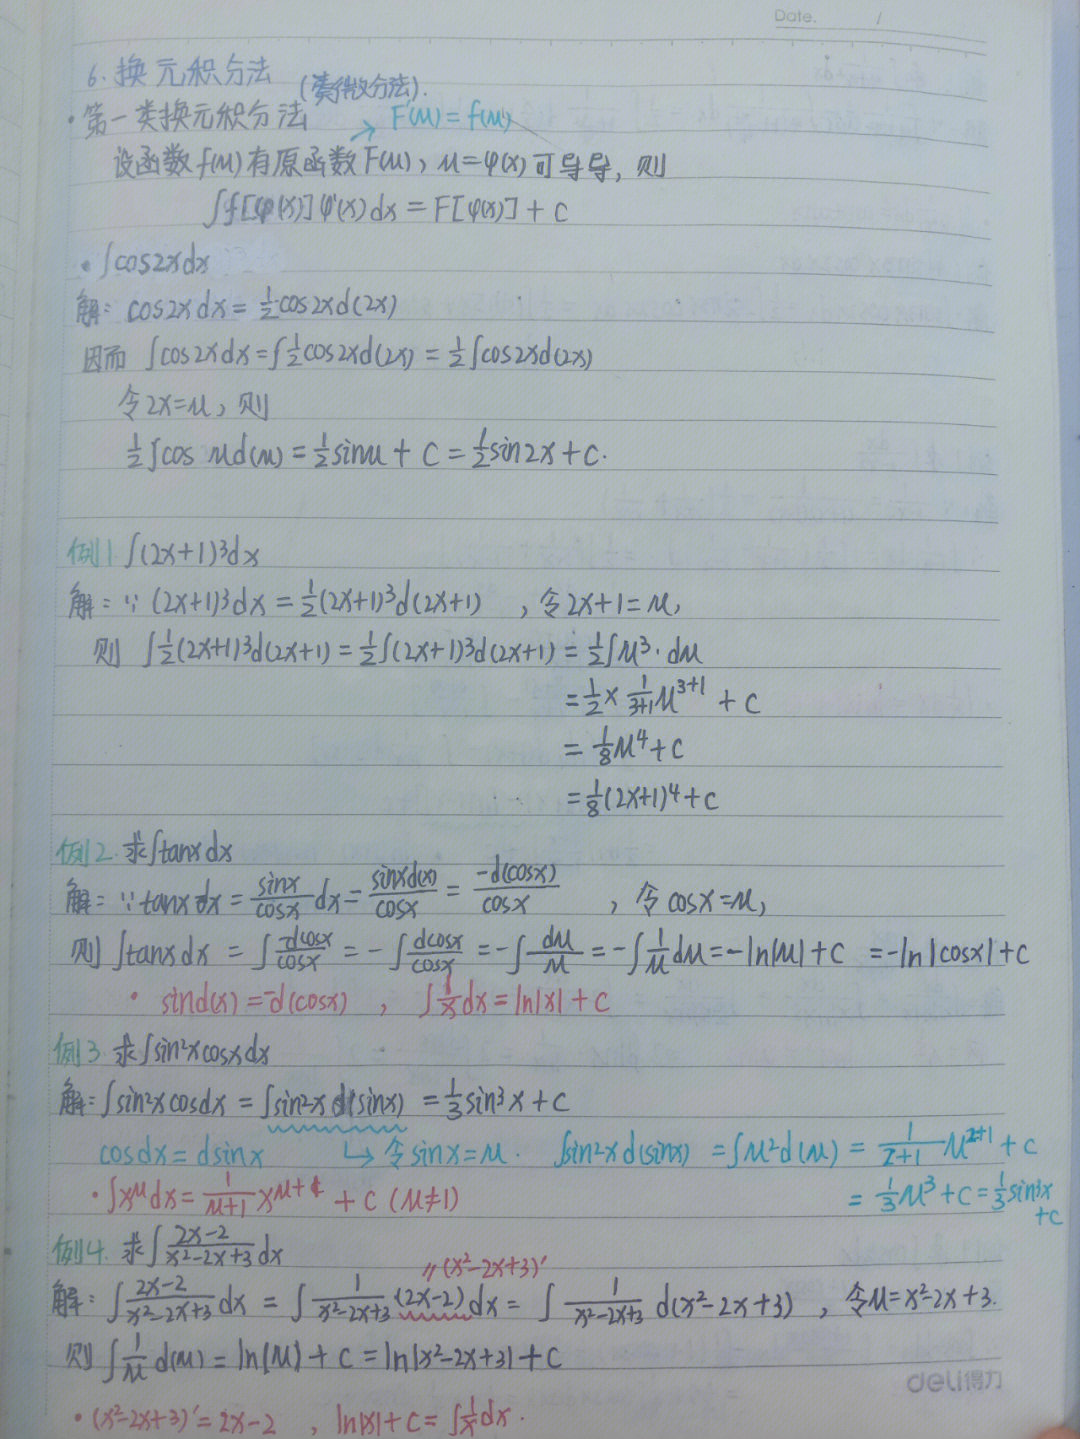 Date. /
6. 换元积分法
·第一类换元积分法 (凑微分法).
→ F'(u) = f(u)
设函数f(u)有原函数F(u), u=φ(x)可导导, 则
∫f[φ(x)]φ'(x)dx = F[φ(x)] + C
· ∫cos2xdx
解: cos2xdx = ½cos2xd(2x)
因而 ∫cos2xdx = ∫½cos2xd(2x) = ½∫cos2xd(2x)
令2x=u, 则
½∫cos ud(u) = ½sinu + C = ½sin2x + C.
例1. ∫(2x+1)³dx
解: ∵ (2x+1)³dx = ½(2x+1)³d(2x+1) , 令2x+1=u,
则 ∫½(2x+1)³d(2x+1) = ½∫(2x+1)³d(2x+1) = ½∫u³·du
= ½ × 1/(3+1) u³⁺¹ + C
= ⅛u⁴ + C
= ⅛(2x+1)⁴ + C
例2. 求∫tanxdx
解: ∵ tanxdx = sinx/cosx dx = sinxd(x)/cosx = -d(cosx)/cosx , 令cosx=u,
则 ∫tanxdx = ∫-dcosx/cosx = -∫dcosx/cosx = -∫du/u = -∫1/u du = -ln|u| + C = -ln|cosx| + C
· sind(x) = -d(cosx) , ∫1/x dx = ln|x| + C
例3. 求∫sin²xcosxdx
解: ∫sin²xcosdx = ∫sin²xd(sinx) = ⅓sin³x + C
cosdx = dsinx ↳ 令sinx=u. ∫sin²xd(sinx) = ∫u²d(u) = 1/(2+1) u²⁺¹ + C
· ∫x^u dx = 1/(u+1) x^(u+1) + C (u≠1) = ⅓u³ + C = ⅓sin³x + C
例4. 求∫(2x-2)/(x²-2x+3) dx
〃(x²-2x+3)'
解: ∫(2x-2)/(x²-2x+3) dx = ∫1/(x²-2x+3) (2x-2)dx = ∫1/(x²-2x+3) d(x²-2x+3) , 令u=x²-2x+3.
则 ∫1/u d(u) = ln|u| + C = ln|x²-2x+3| + C
deli得力
· (x²-2x+3)' = 2x-2 , ln|x| + C = ∫1/x dx.